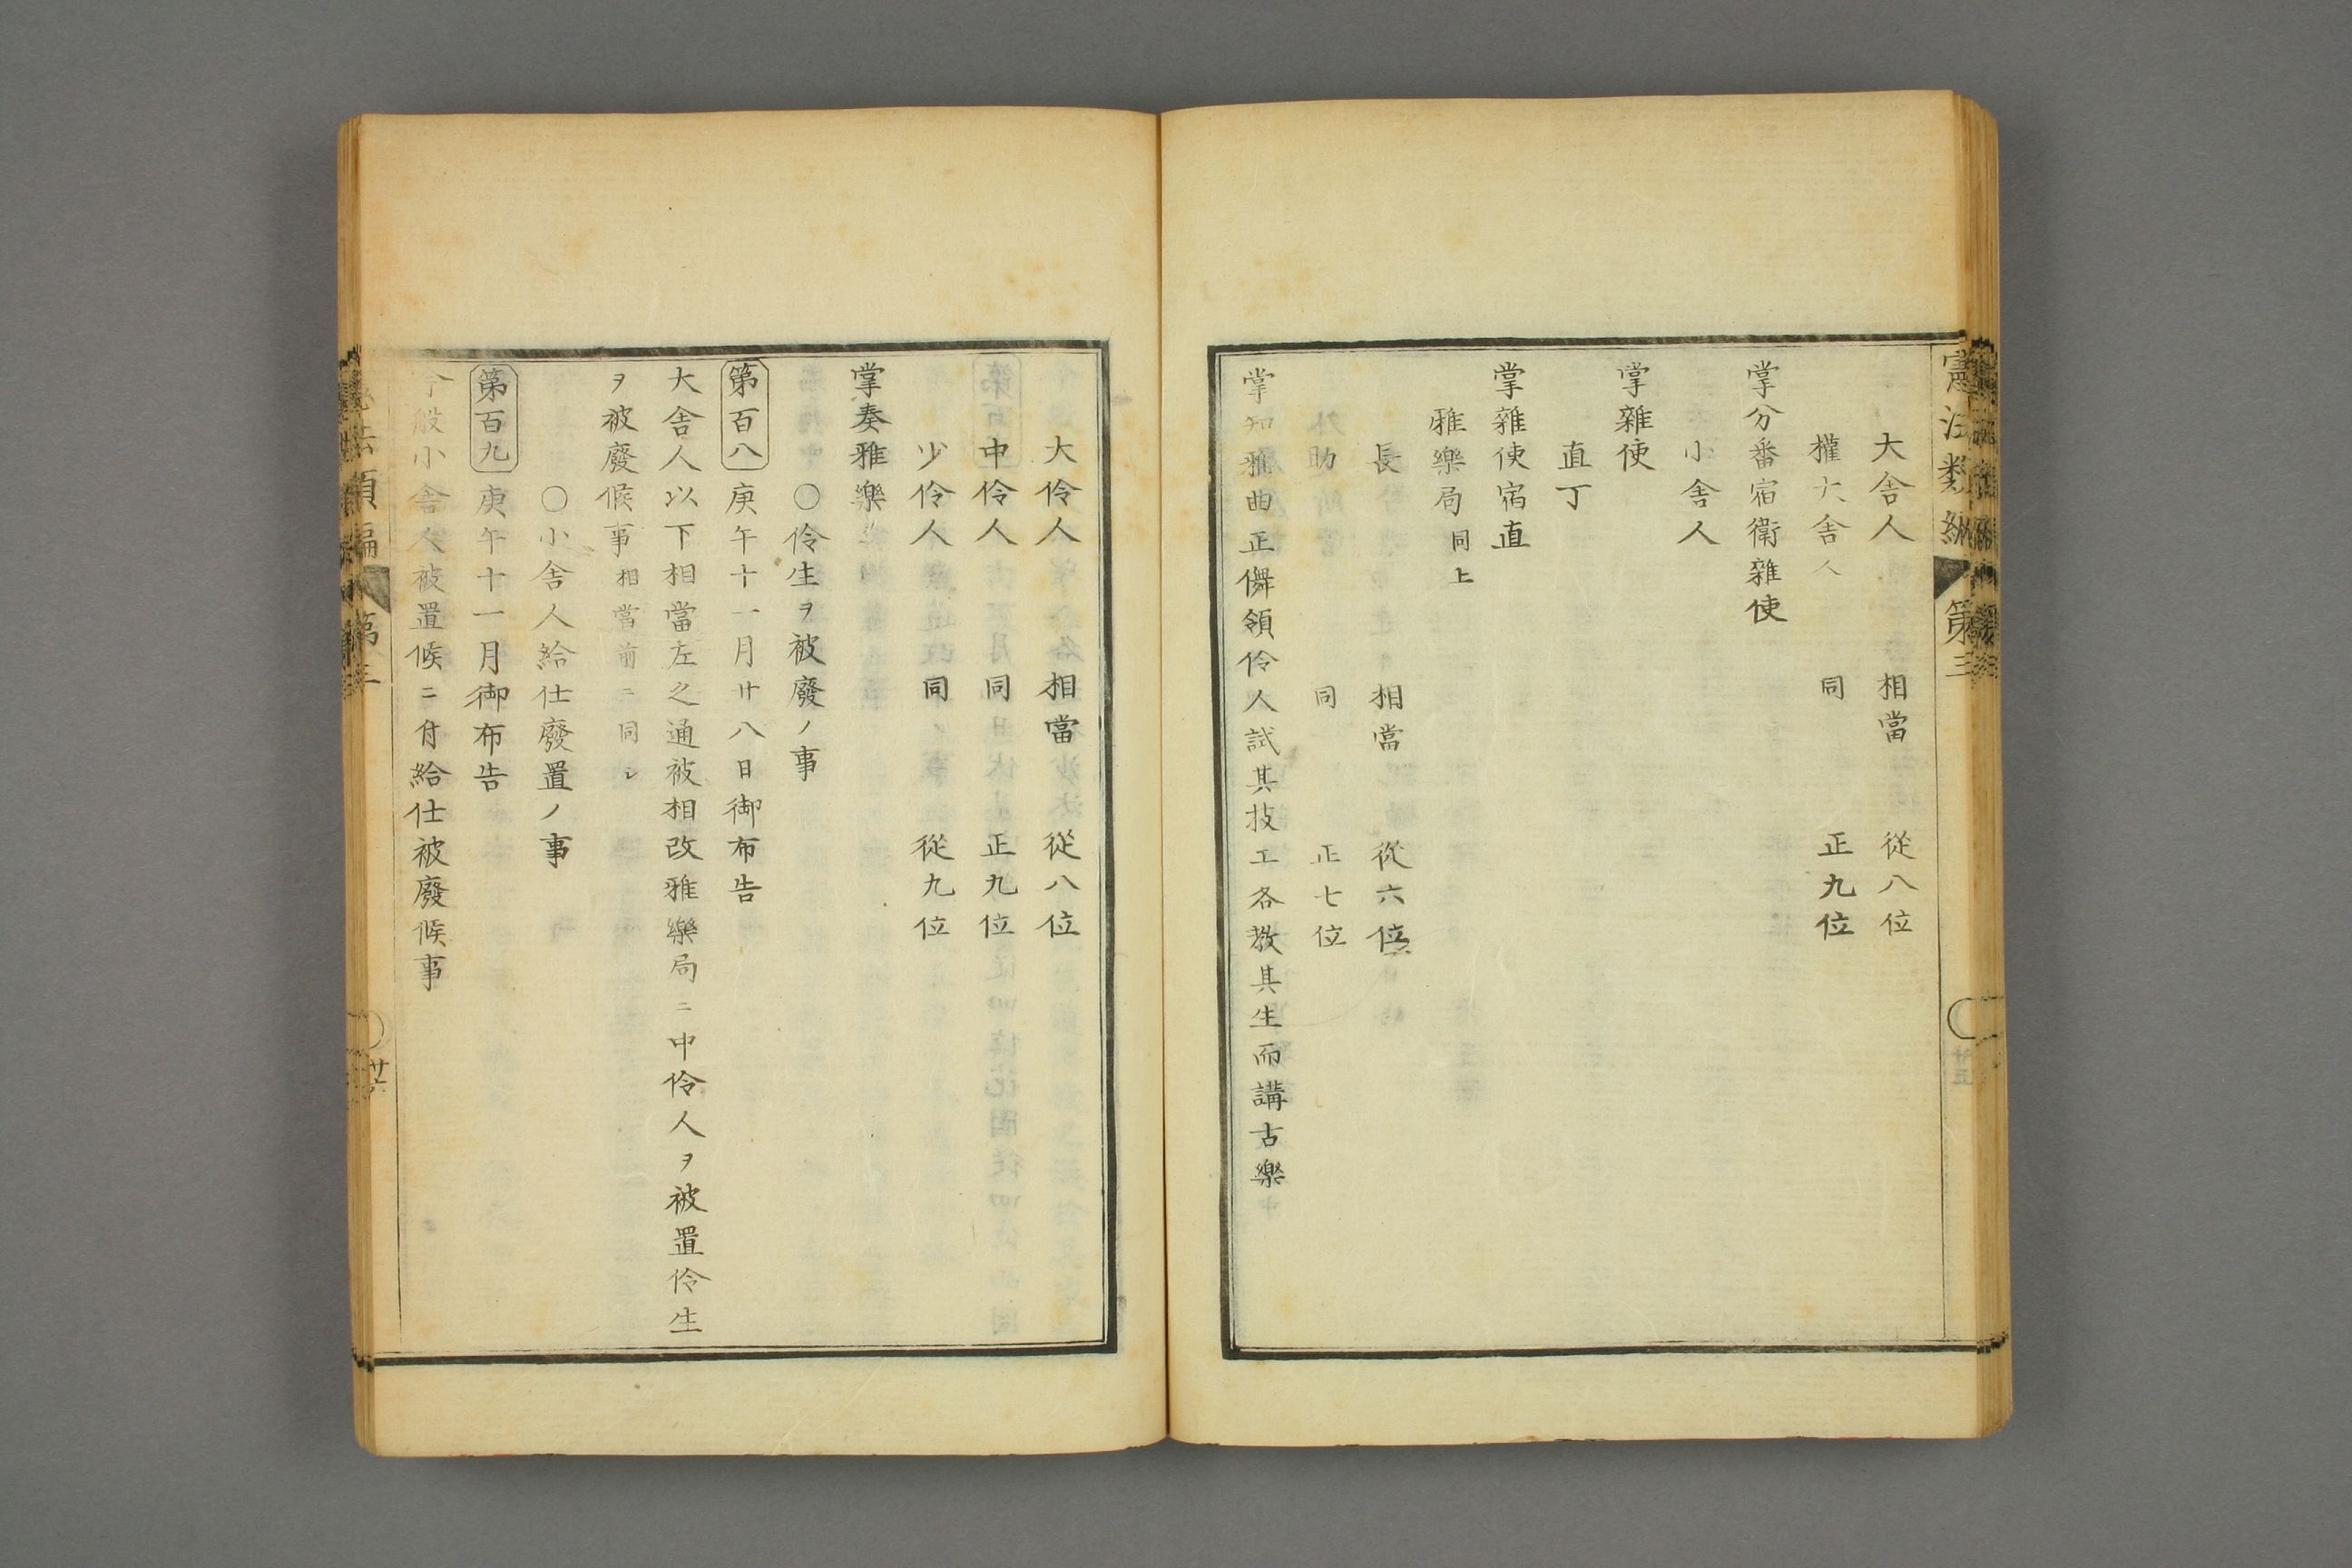 憲法類編 第三
大舎人 相當 從八位
權大舎人 同 正九位
掌分番宿衛雜使
小舎人
掌雜使
直丁
掌雜使宿直
雅樂局 同上
長 相當 從六位
助 同 正七位
掌知雅曲正儛領伶人試其技工各教其生而講古樂
廿五
大伶人 相當 從八位
中伶人 同 正九位
少伶人 同 從九位
掌奏雅樂
〇伶生ヲ被廢ノ事
第百八 庚午十一月廿八日御布告
大舎人以下相當左之通被相改雅樂局ニ中伶人ヲ被置伶生
ヲ被廢候事 相當前ニ同シ
〇小舎人給仕廢置ノ事
第百九 庚午十一月御布告
今般小舎人被置候ニ付給仕被廢候事
類編 第三
廿六